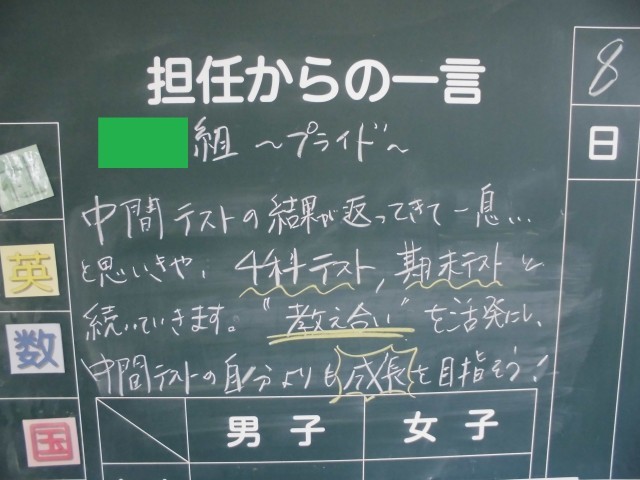 担任からの一言
組 ～プライド～
中間テストの結果が返ってきて一息…
と思いきや、4科テスト,期末テストと
続いていきます。"教え合い"を活発にし、
中間テストの自分よりも成長を目指そう!
8
日
英
数
国
男子
女子